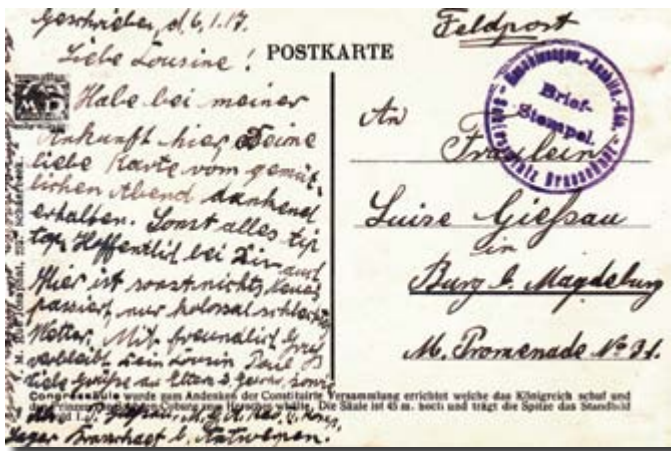 Geschrieben, d. 6.1.17.
Liebe Cousine!
Habe bei meiner
Ankunft hier Deine
liebe Karte vom gemüt-
lichen Abend dankend
erhalten. Sonst alles tip
top. Hoffentlich bei Dir auch
Hier ist sonst nichts Neues
passiert, nur kolossal schlechtes
Wetter. Mit freundlich. Gruß
verbleibt Dein Cousin
Liebe Grüße an Eltern
Lager Brasschaet b. Antwerpen.
POSTKARTE
Feldpost
Brief-
Stempel.
An
Fräulein
Luise Gießau
in
Burg b. Magdeburg
M. Promenade No 31.
Congressäule wurde zum Andenken der Constituirte Versammlung errichtet welche das Königreich schuf und
Coburg zum Herrscher wählte. Die Säule ist 45 m. hoch und trägt die Spitze das Standbild